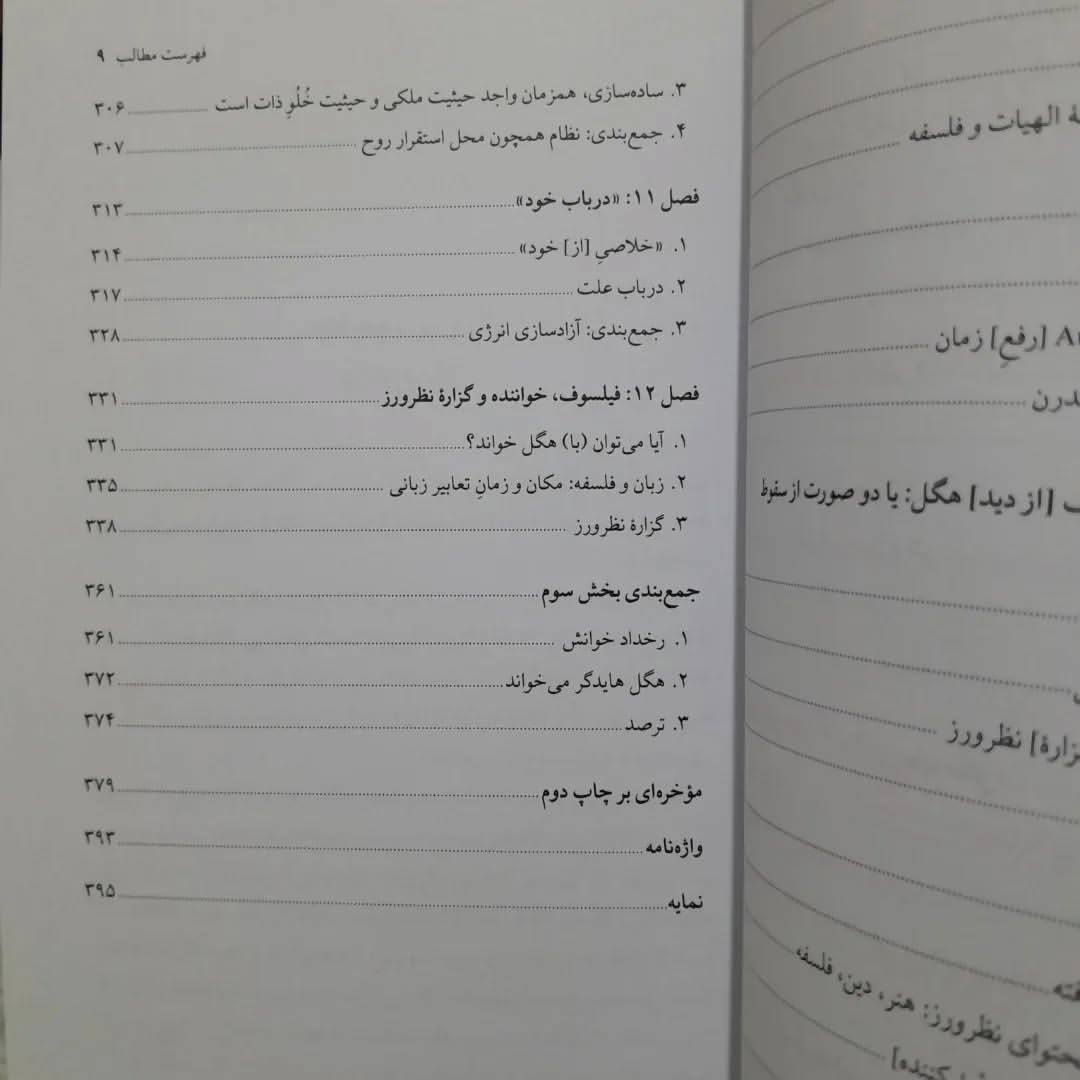 ۀ الهیات و فلسفه
[رفعِ] زمان
[از دید] هگل: یا دو صورت از سقوط
نظرورز
نظرورز: هنر، دین، فلسفه
فهرست مطالب ۹
۳. ساده‌سازی، همزمان واجد حیثیت ملکی و حیثیت خُلُوِ ذات است ........ ۳۰۶
۴. جمع‌بندی: نظام همچون محل استقرار روح ........ ۳۰۷
فصل ۱۱: «درباب خود» ........ ۳۱۳
۱. «خلاصیِ [از] خود» ........ ۳۱۴
۲. درباب علت ........ ۳۱۷
۳. جمع‌بندی: آزادسازی انرژی ........ ۳۲۸
فصل ۱۲: فیلسوف، خواننده و گزارۀ نظرورز ........ ۳۳۱
۱. آیا می‌توان (با) هگل خواند؟ ........ ۳۳۱
۲. زبان و فلسفه: مکان و زمانِ تعابیر زبانی ........ ۳۳۵
۳. گزارۀ نظرورز ........ ۳۳۸
جمع‌بندی بخش سوم ........ ۳۶۱
۱. رخداد خوانش ........ ۳۶۱
۲. هگل هایدگر می‌خواند ........ ۳۷۲
۳. ترصد ........ ۳۷۴
مؤخره‌ای بر چاپ دوم ........ ۳۷۹
واژه‌نامه ........ ۳۹۳
نمایه ........ ۳۹۵